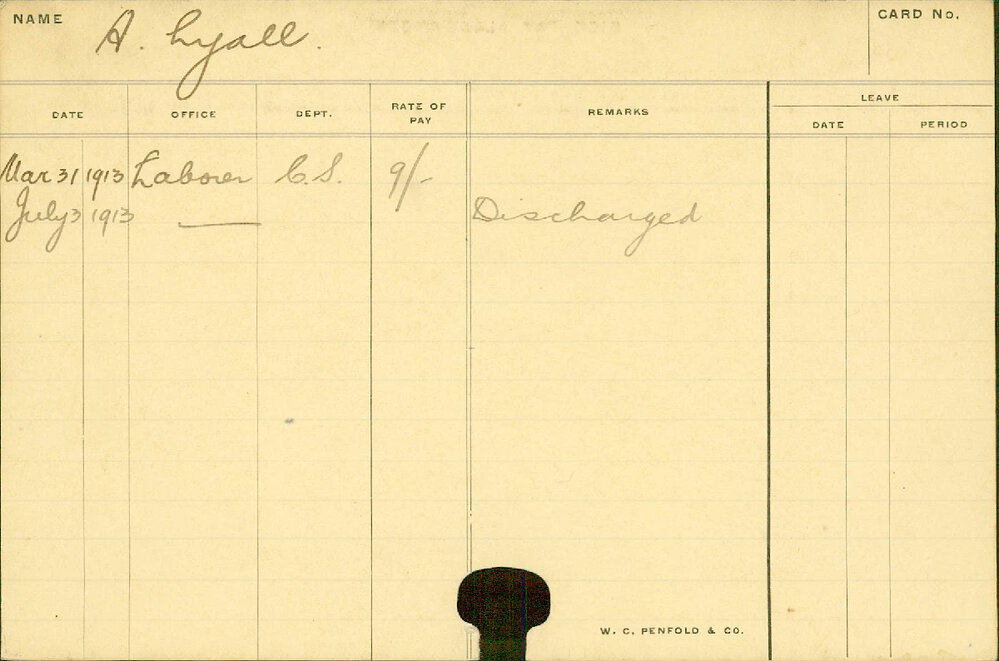 NAME A. Lyall. CARD No.
DATE OFFICE DEPT. RATE OF PAY REMARKS LEAVE
DATE PERIOD
Mar 31 1913 Laborer C.S. 9/-
July 3 1913 — Discharged
W. C. PENFOLD & CO.